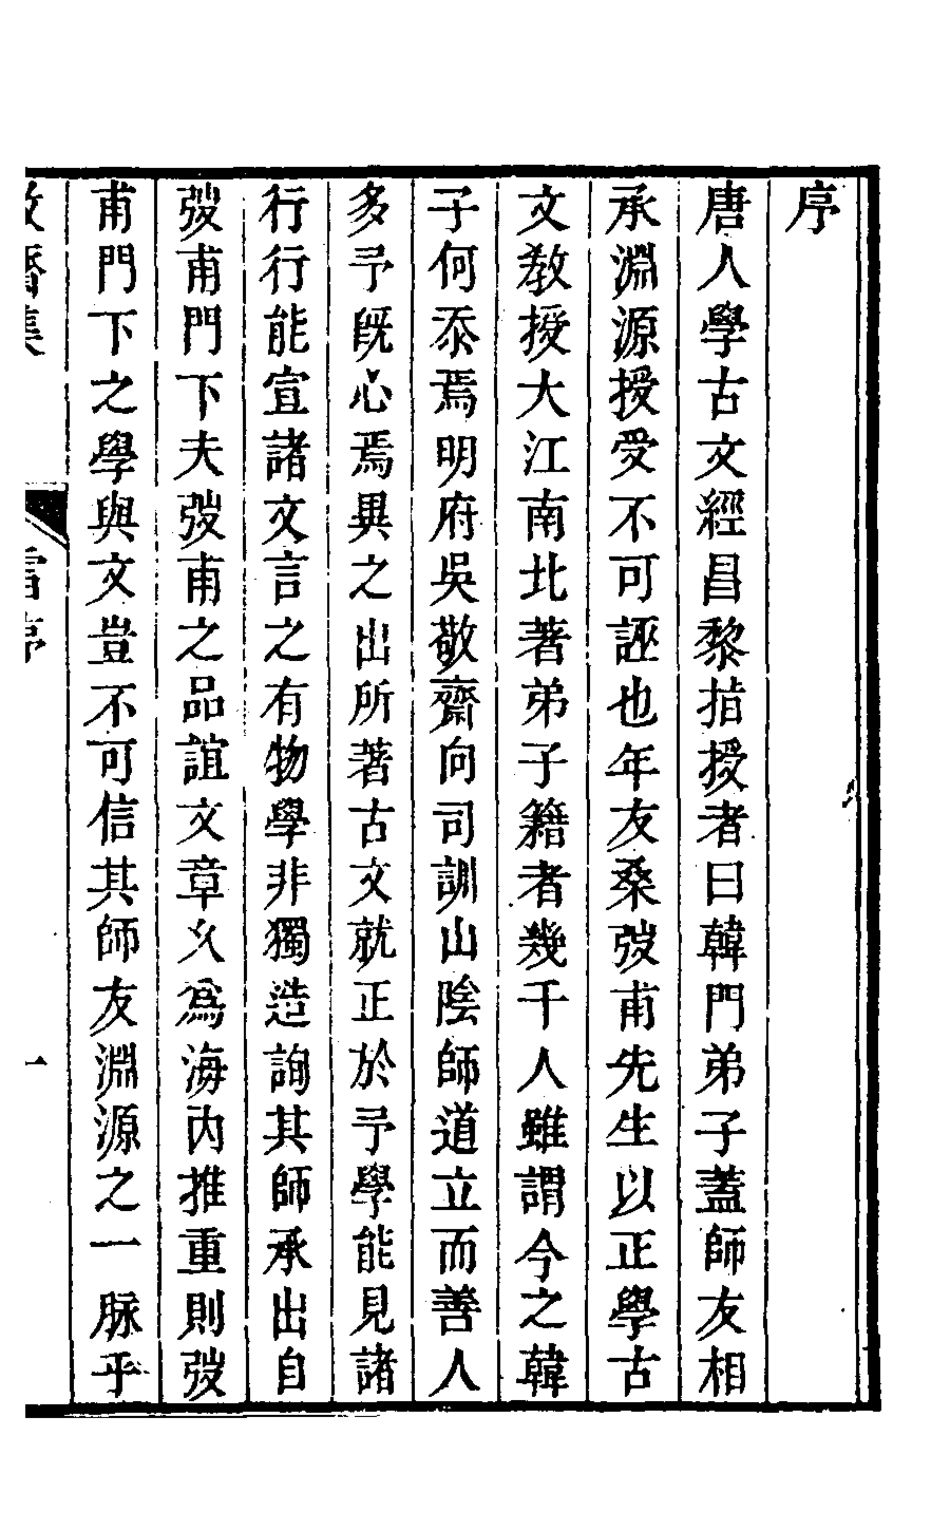 序
唐人學古文經昌黎指授者曰韓門弟子蓋師友相
承淵源授受不可誣也年友桑弢甫先生以正學古
文教授大江南北著弟子籍者幾千人雖謂今之韓
子何忝焉明府吳敬齋向司訓山陰師道立而善人
多予既心焉異之出所著古文就正於予學能見諸
行行能宣諸文言之有物學非獨造詢其師承出自
弢甫門下夫弢甫之品誼文章久爲海內推重則弢
甫門下之學與文豈不可信其師友淵源之一脉乎
齋集
序
一